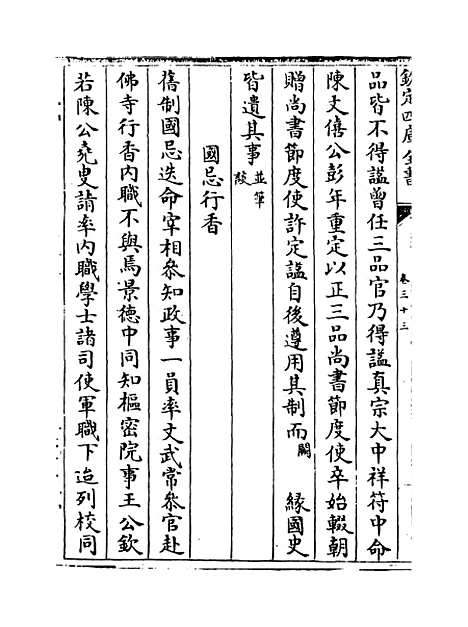 欽定四庫全書
卷三十三
品皆不得謚曾任三品官乃得謚真宗大中祥符中命
陳文僖公彭年重定以正三品尚書節度使卒始輟朝
贈尚書節度使許定謚自後遵用其制而闕 緣國史
皆遺其事並筆錄
國忌行香
舊制國忌迭命宰相叅知政事一員率文武常叅官赴
佛寺行香内職不與焉景德中同知樞密院事王公欽
若陳公堯叟請率内職學士諸司使軍職下迨列校同